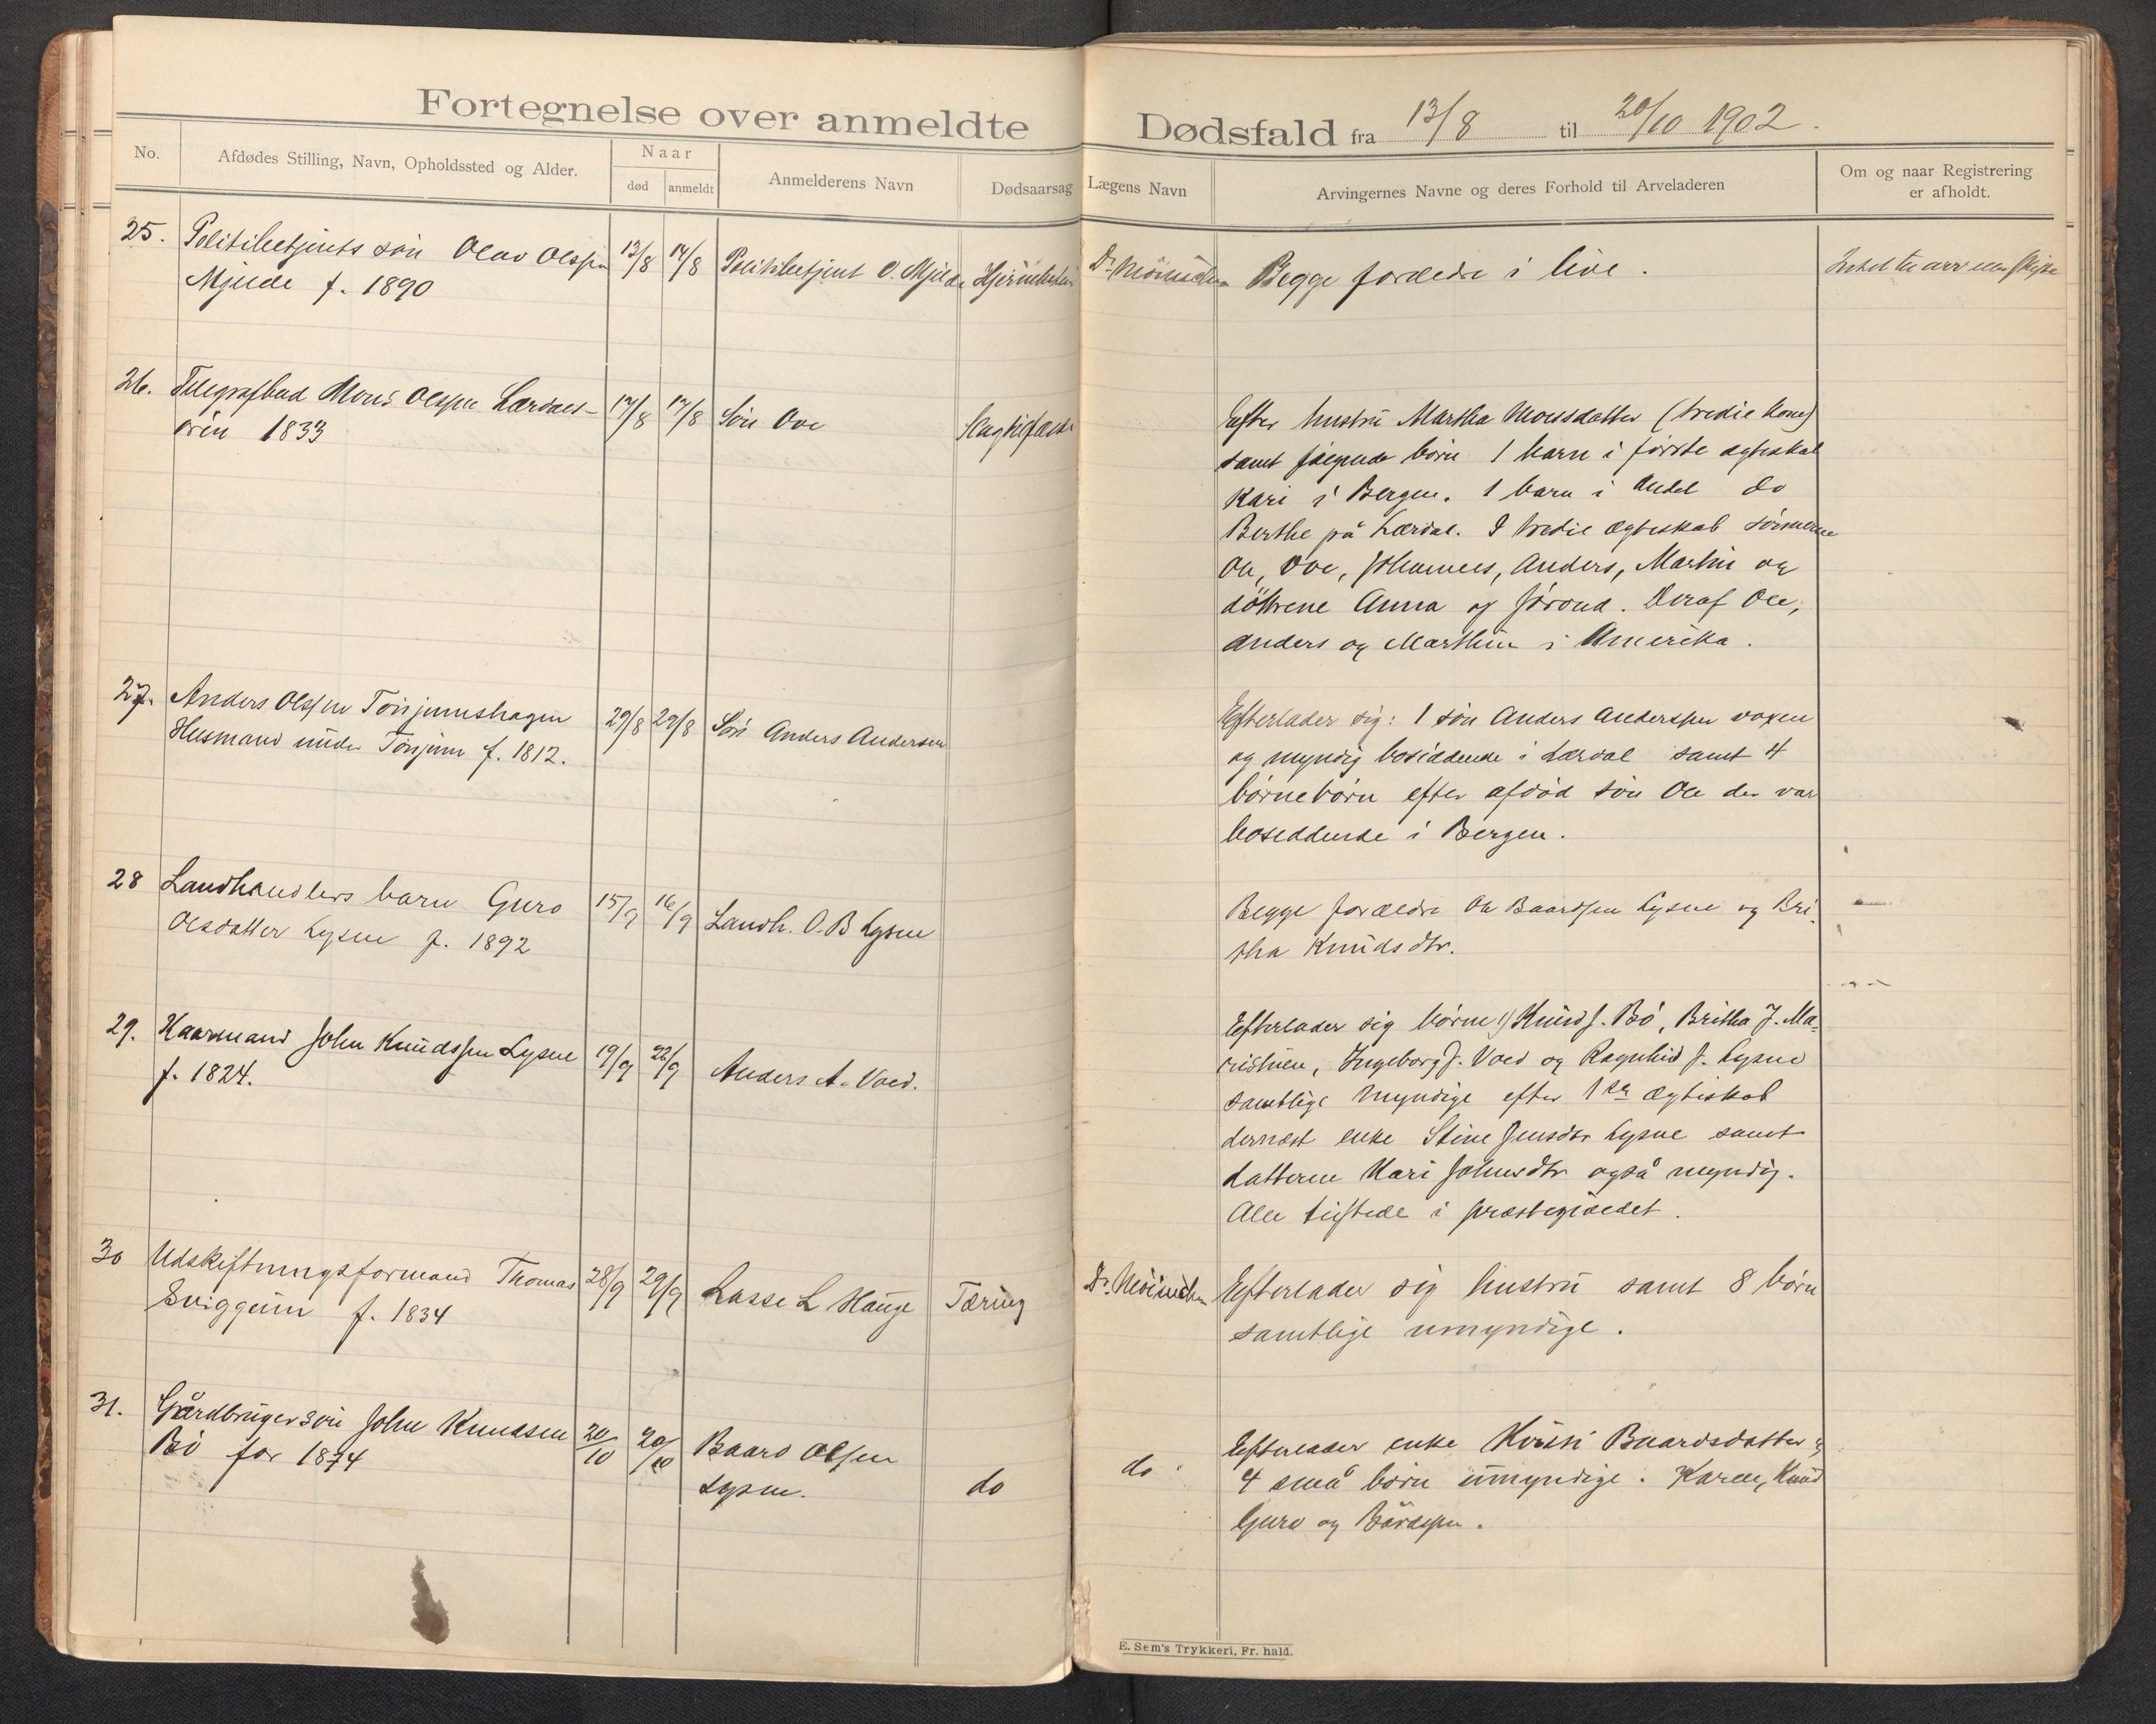 Fortegnelse over anmeldte Dødsfald fra 13/8 til 20/10 1902.
No.
Afdødes Stilling, Navn, Opholdssted og Alder.
Naar
død
anmeldt
Anmelderens Navn
Dødsaarsag
Lægens Navn
Arvingernes Navne og deres Forhold til Arveladeren
Om og naar Registrering
er afholdt.
25.
Politibetjents søn Olav Olssen
Mjelde f. 1890
13/8
14/8
Politibetjent O. Mjelde
Dr.
Begge forældre i live.
Intet til arv eller skifte
26.
Telegrafbud Mons Olssen Lærdals-
ören 1833
17/8
17/8
Sön Ove
Slagtilfælde
Efter hustru Martha Monsdatter (tredie kone)
samt følgende börn 1 barn i förste ægteskab
Kari i Bergen. 1 barn i andet do
Berthe på Lærdal. I tredie ægteskab sönnerne
Ole, Ove, Johannes, Anders, Martin og
döttrene Anna og Jörond. Deraf Ole,
Anders og Marthin i Amerika.
27.
Anders Olssen Tönjumshagen
Husmand under Tönjum f. 1812.
29/8
29/8
Sön Anders Andersen
Efterlader sig: 1 sön Anders Anderssen voxen
og myndig bosiddende i Lærdal samt 4
börnebörn efter afdöd sön Ole der var
boseddende i Bergen.
28
Landhandlers barn Guro
Olsdatter Lysne f. 1892
15/9
16/9
Landh. O. B Lysne
Begge forældre Ole Baardsen Lysne og Bri-
tha Knudsdtr.
29.
Kaarmand John Knudssen Lysne
f. 1824.
19/9
22/9
Anders A. Vold.
Efterlader sig börne 1) Knud J. Bö, Britha J. Ma-
ristuen, Ingeborg J. Vold og Ragnhild J. Lysne
samtlige myndige efter 1ste ægteskab
dernæst enke Stine Jensdtr Lysne samt
datteren Kari Johnsdtr også myndig.
Alle tilstede i præstegjældet.
30
Udskiftningsformand Thomas
Eriggum f. 1834
28/9
29/9
Lasse L Hauge
Tæring
Dr.
Efterlader sig hustru samt 8 börn
samtlige umyndige.
31.
Gårdbrugersön John Knudsen
Bö før 1874
20/10
20/10
Baard Olsen
Lysne.
do
do
Efterlader enke Kristi Baardsdatter &
4 små børn umyndige. Karen, Knud
Guro og
E. Sem's Trykkeri, Fr. hald.